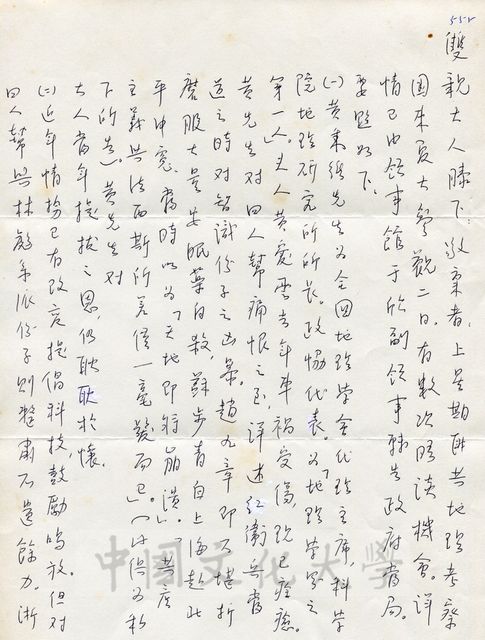 552
雙親大人膝下：敬稟者，上星期匪共地理考察
團來夏大參觀二日，有數次晤談機會。詳
情已由領事館于欣副領事轉告政府當局。
要點如下。
(一)黃秉維先生為全國地理學會代理主席，科學
院地理研究所所長。政協代表。為「地理學界之
第一人」。夫人黃愛屏去年車禍受傷，現已痊癒。
黃先生對四人幫痛恨之至，詳述紅衛兵當
道之時對知識份子之凶暴。趙九章即不堪折
磨服大量安眠藥自殺，蘇步青自上海赴北
平申冤。當時以為「天地即將崩潰」。「共產
主義與法西斯所差僅一毫髮而已」。
下所述）。黃先生對
大人當年提拔之恩，仍耿耿於懷。
(二)近年情勢已有改變提倡科技鼓勵鳴放。但對
四人幫與林彪系派份子則整肅不遺餘力。浙
中國文化大學